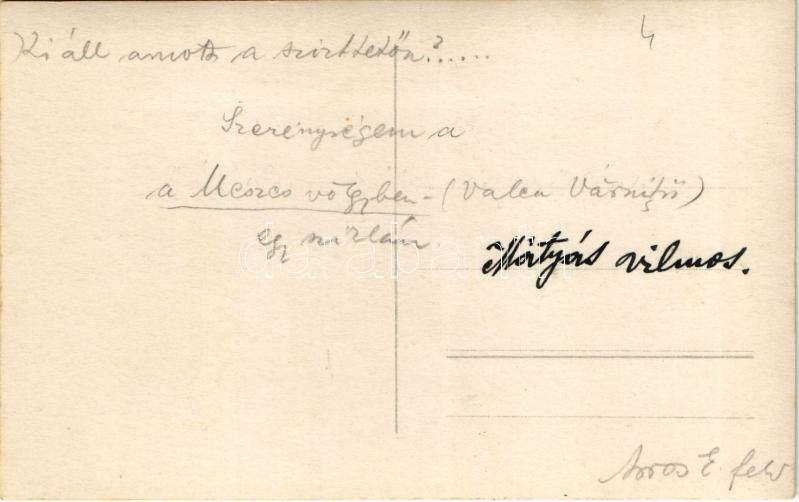 Ki áll amott a szirttetőn?.....
4
Szerénységem a
a Meszes völgyben - (Valea Várniții)
egy szirtán.
Mátyás Vilmos.
Oros E felv
darabanth